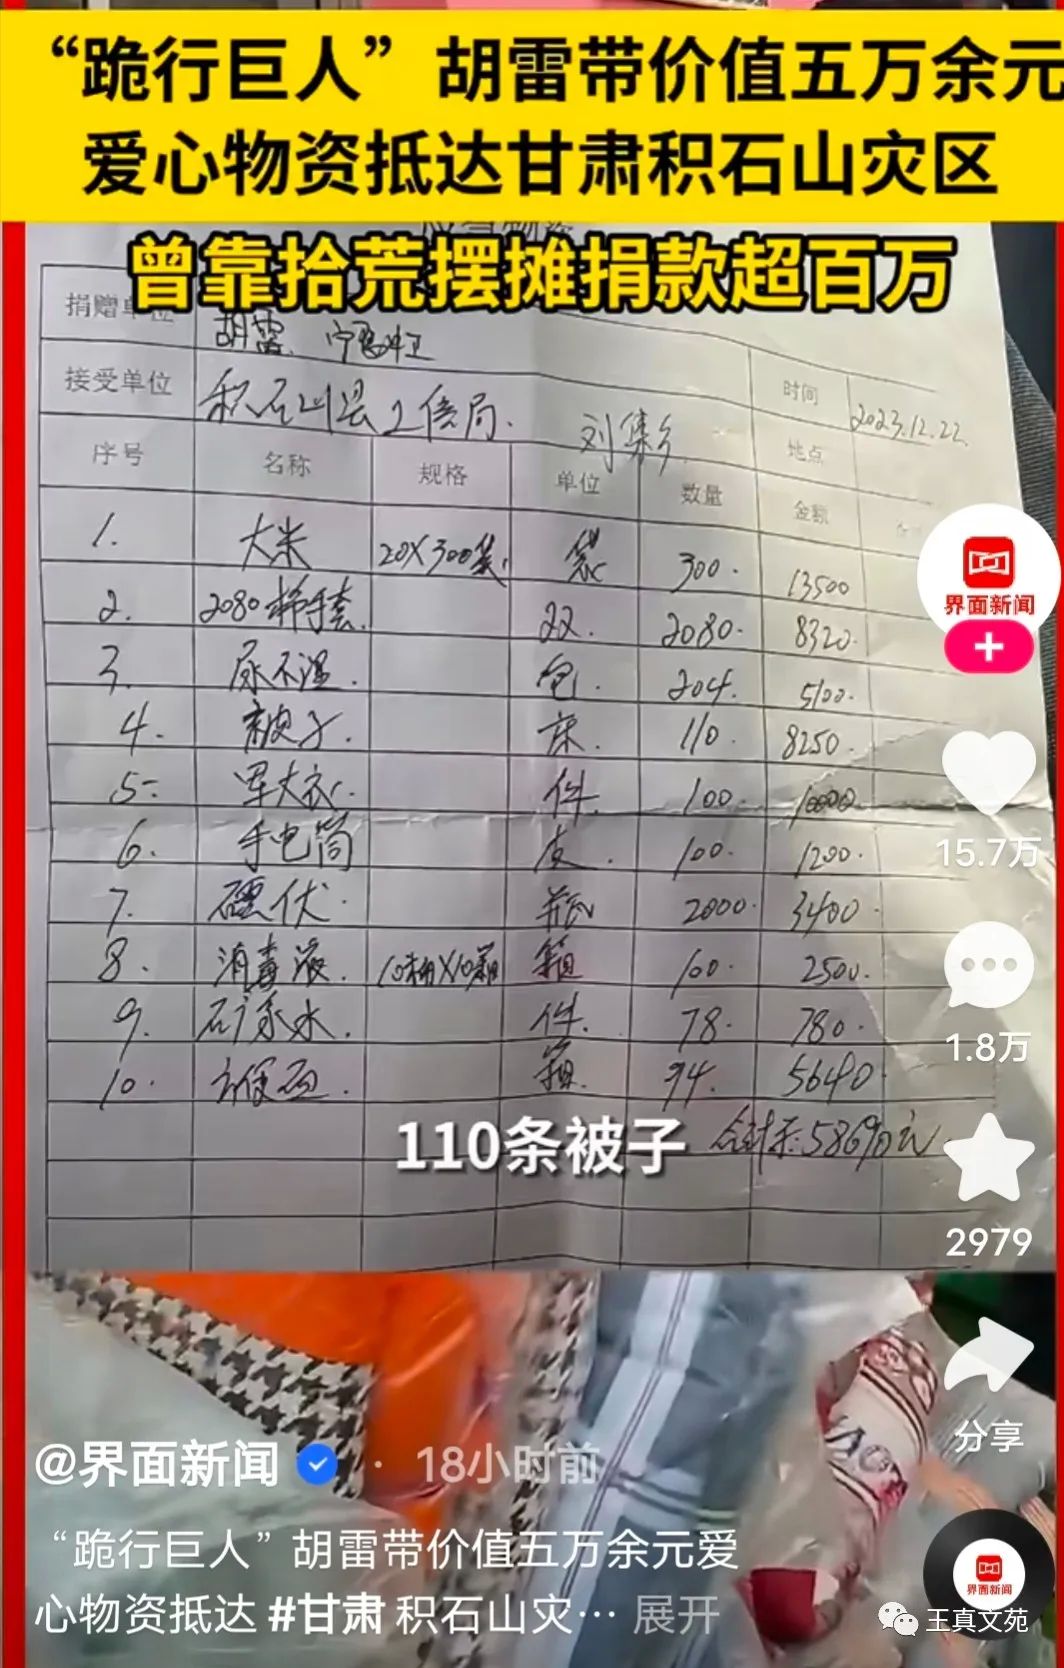 “跪行巨人”胡雷带价值五万余元
爱心物资抵达甘肃积石山灾区
曾靠拾荒摆摊捐款超百万
捐赠单位 胡雷
接受单位 积石山县工信局. 刘集乡 时间 2023.12.22.
地点
序号 名称 规格 单位 数量 金额
1. 大米 20X300袋. 袋 300. 13500
2. 2080棉手套. 双. 2080. 8320.
3. 尿不湿. 包. 204. 5100.
4. 被子. 床. 110. 8250.
5. 军大衣. 件. 100. 10000.
6. 手电筒 支. 100. 1200.
7. 碘伏. 瓶 2000. 3400.
8. 消毒液. 箱 100. 2500.
9. 矿泉水. 件. 78. 780.
10. 方便面. 箱. 94. 5640
合计: 58690元.
110条被子
界面新闻
15.7万
1.8万
2979
分享
@界面新闻 · 18小时前
“跪行巨人”胡雷带价值五万余元爱
心物资抵达 #甘肃 积石山灾… 展开
界面新闻
王真文苑